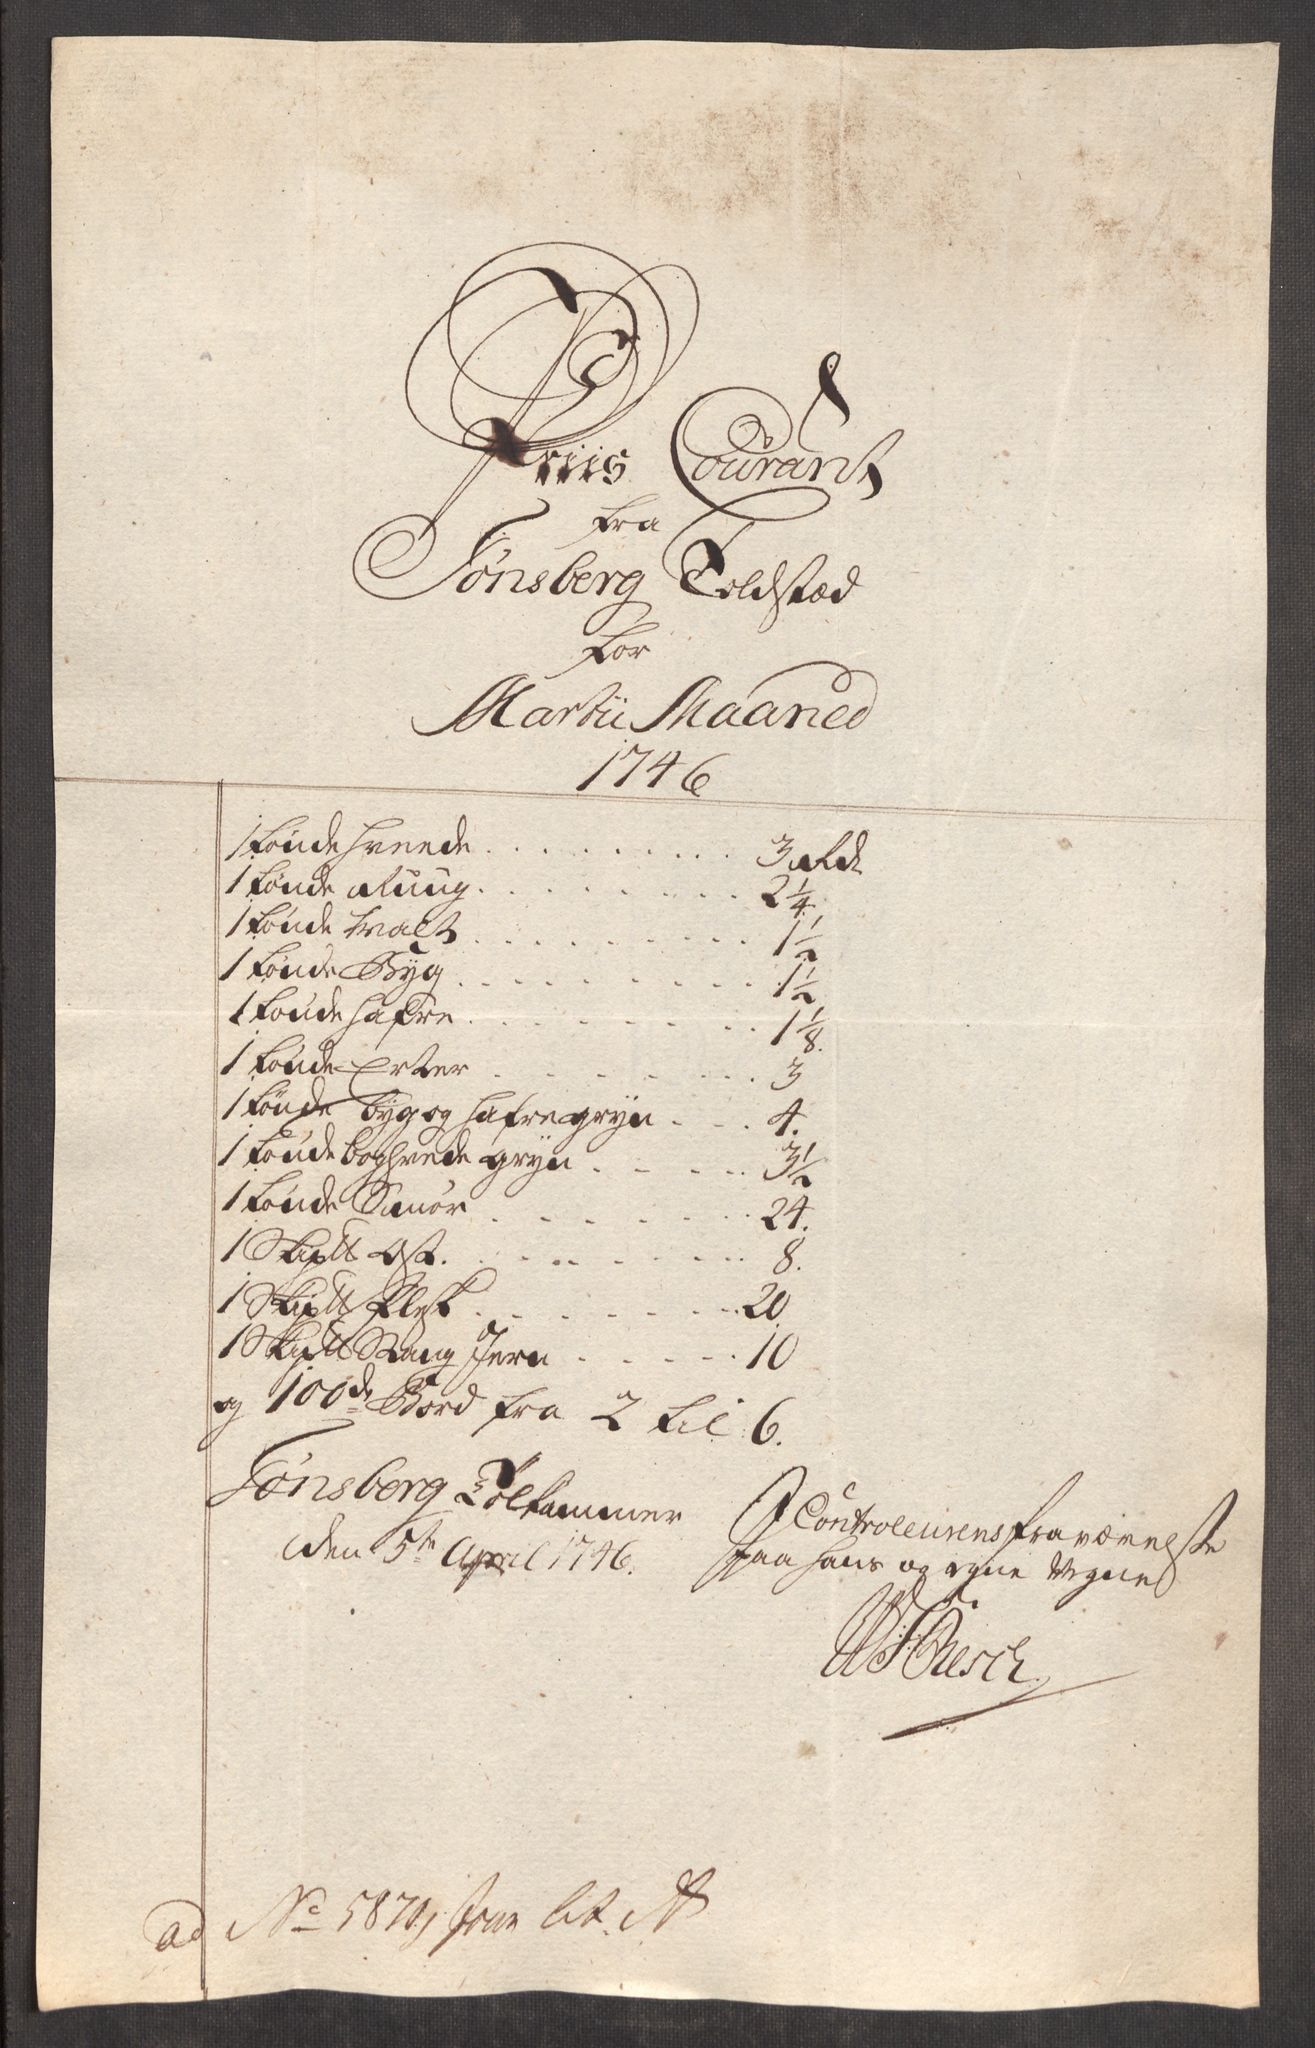 Priis Courant
fra
Tønsberg Toldstæd
for
Martii Maaned
1746
1 tønde hveede . . . . . . . . 3 Rdr
1 tønde Ruug . . . . . . . . 2 1/4
1 tønde Malt . . . . . . . . 1 1/2
1 tønde Byg . . . . . . . . 1 1/2
1 tønde hafre . . . . . . . . 1 1/8.
1 tønde Erter . . . . . . . . 3
1 tønde byg og hafregryn . . . 4.
1 tønde boghvede gryn . . . . . 3 1/2
1 tønde Smør . . . . . . . . 24.
1 Skip℔ Ost . . . . . . . . 8.
1 Skip℔ Flesk . . . . . . . . 20
1 Skip℔ Stang Jern . . . . . 10
og 100de Bord fra 2 til 6.
Tønsberg Toldkammer
den 5te April 1746.
I Controleurens fraværelse
paa hans og egne Vegne
ad No 5870